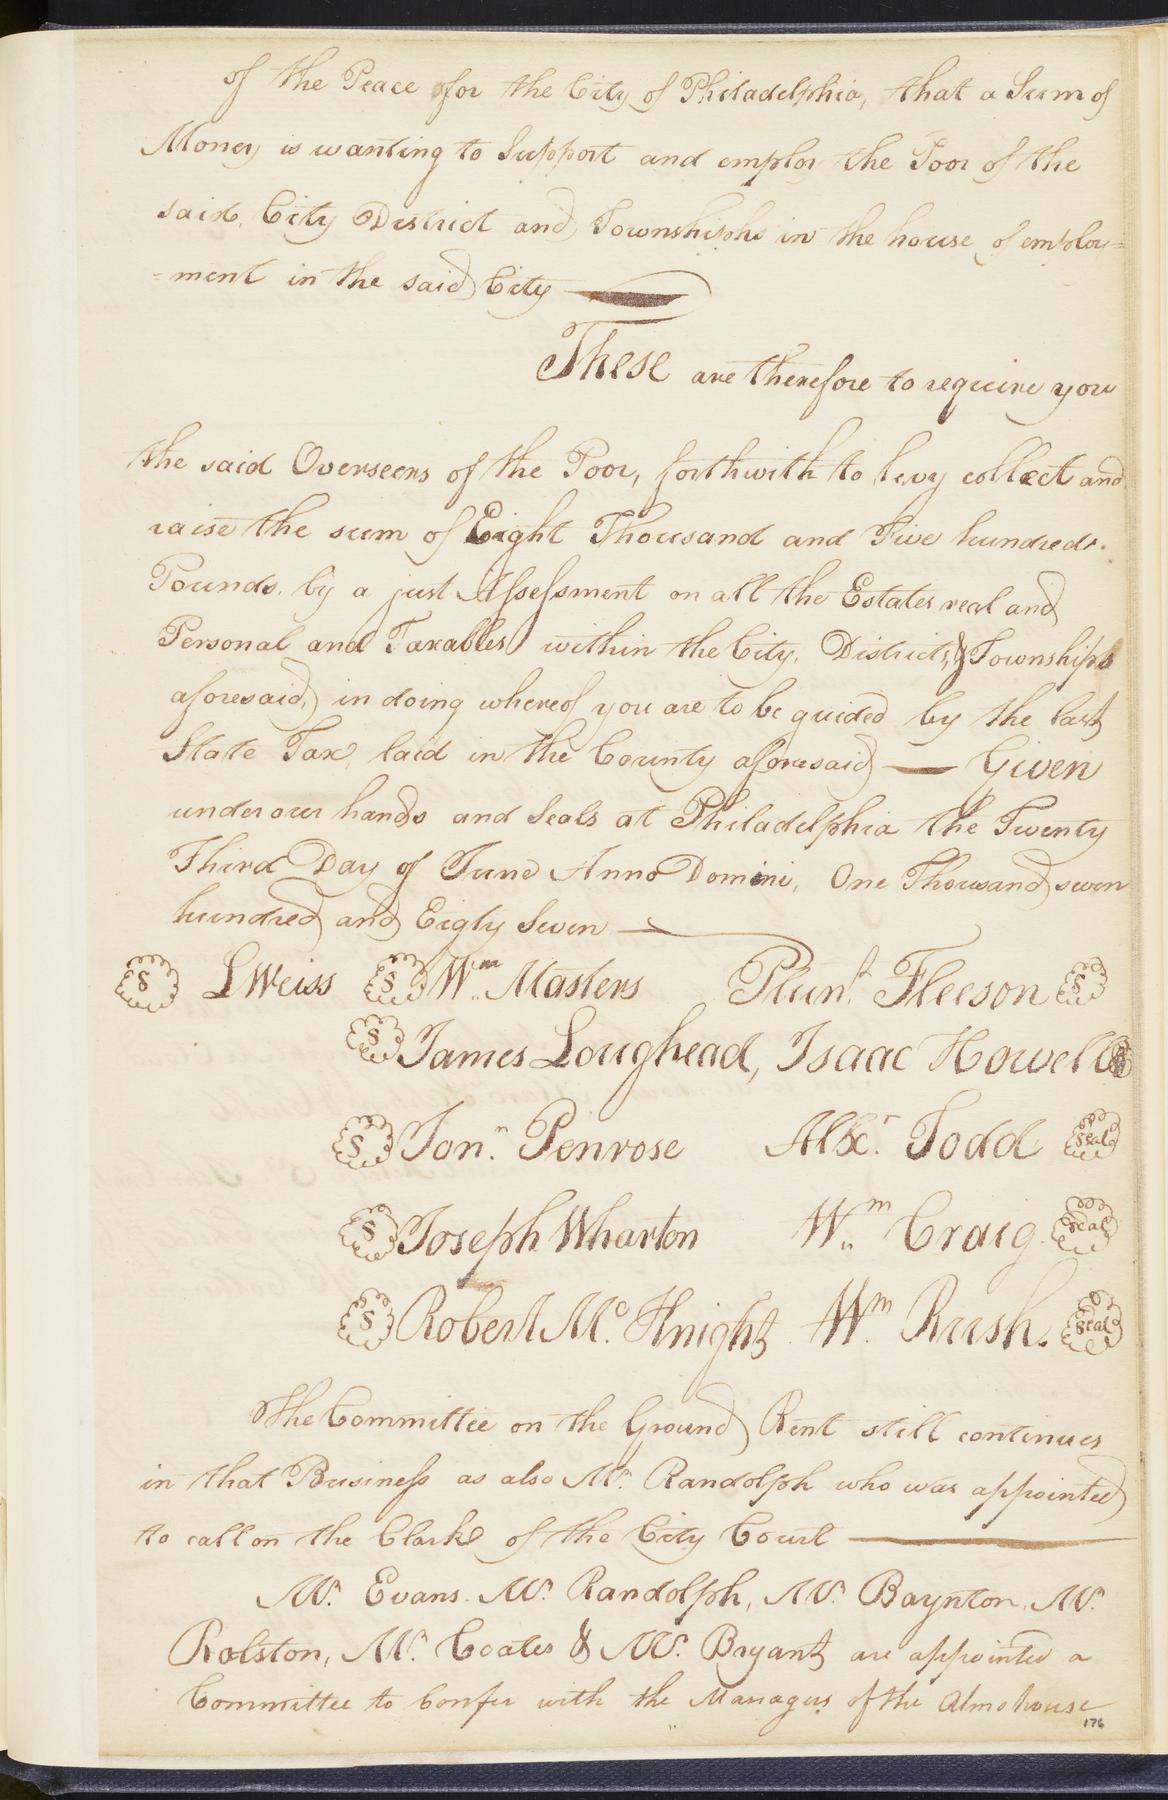 of the Peace for the City of Philadelphia, that a Sum of
Money is wanting to Support and employ the Poor of the
said City District and Townshiphs in the house of employ=
=ment in the said City
These are therefore to require you
the said Overseers of the Poor, forthwith to levy collect and
raise the sum of Eight Thousand and Five hundred
Pounds by a just Assessment on all the Estates real and
Personal and Taxables within the City, Districts, & Townships
aforesaid, in doing whereof you are to be guided by the last
State Tax, laid in the County aforesaid — Given
under our hands and Seals at Philadelphia the Twenty
Third Day of June Anno Domini, One Thousand seven
hundred and Eigty Seven
S L Weiss S Wm. Masters Plunt. Fleeson S
S James Loughead, Isaac Howell
S Jonn. Penrose Alexr. Todd Seal
S Joseph Wharton Wm. Craig Seal
S Robert Mc. Knight Wm. Rush. Seal
The Committee on the Ground Rent still continues
in that Business as also Mr. Randolph who was appointed
to call on the Clark of the City Court
Mr. Evans. Mr. Randolph, Mr. Baynton, Mr.
Rolston, Mr. Coates & Mr. Bryant are appointed a
Committee to Confer with the Managers of the Almshouse
176